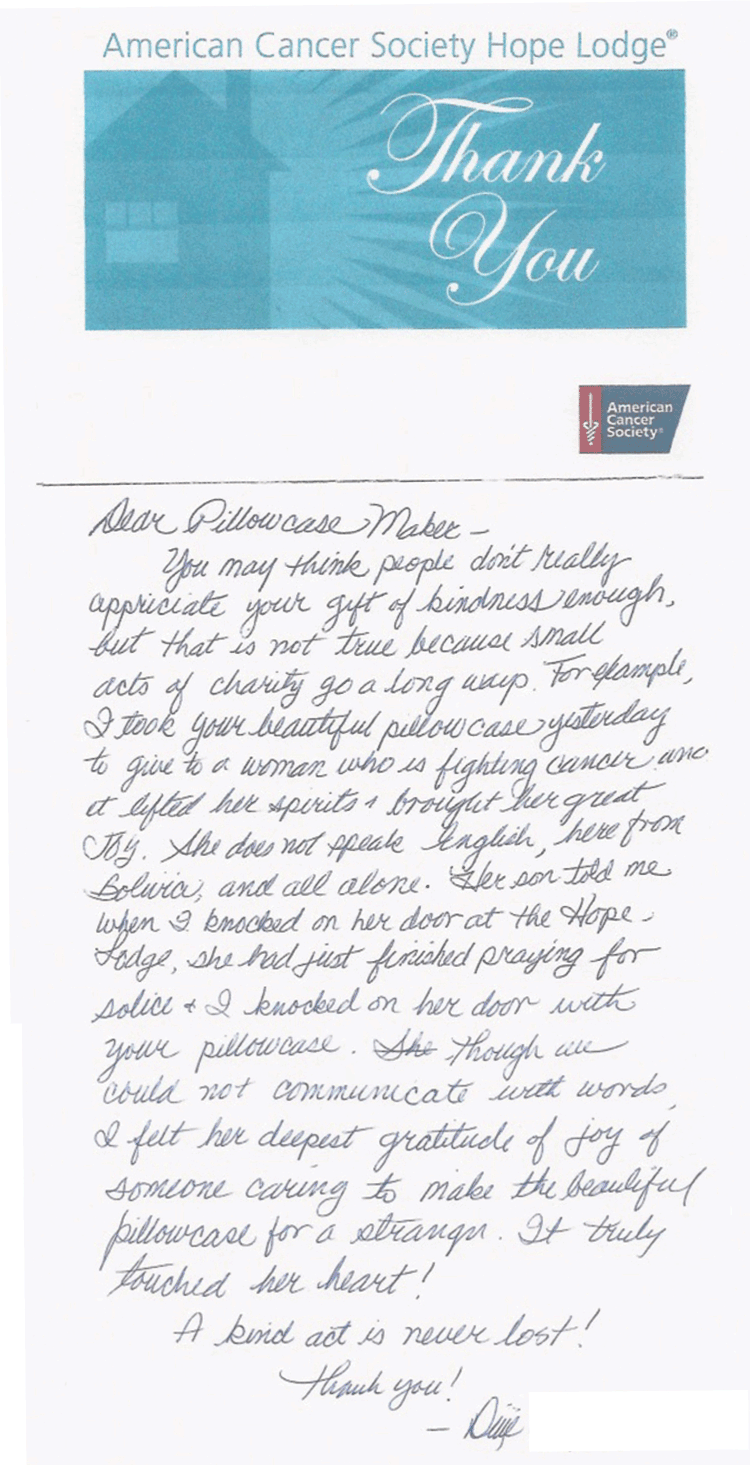 American Cancer Society Hope Lodge®
Thank
You
American
Cancer
Society®
Dear Pillowcase Maker -
You may think people don't really
appriciate your gift of kindness enough,
but that is not true because small
acts of charity go a long ways. For example,
I took your beautiful pillowcase yesterday
to give to a woman who is fighting cancer and
it lifted her spirits & brought her great
Joy. She does not speak English, here from
Bolivia, and all alone. Her son told me
when I knocked on her door at the Hope
Lodge, she had just finished praying for
solice & I knocked on her door with
your pillowcase. She Though we
could not communicate with words,
I felt her deepest gratitude of joy of
someone caring to make the beautiful
pillowcase for a stranger. It truly
touched her heart!
A kind act is never lost!
Thank you!
-